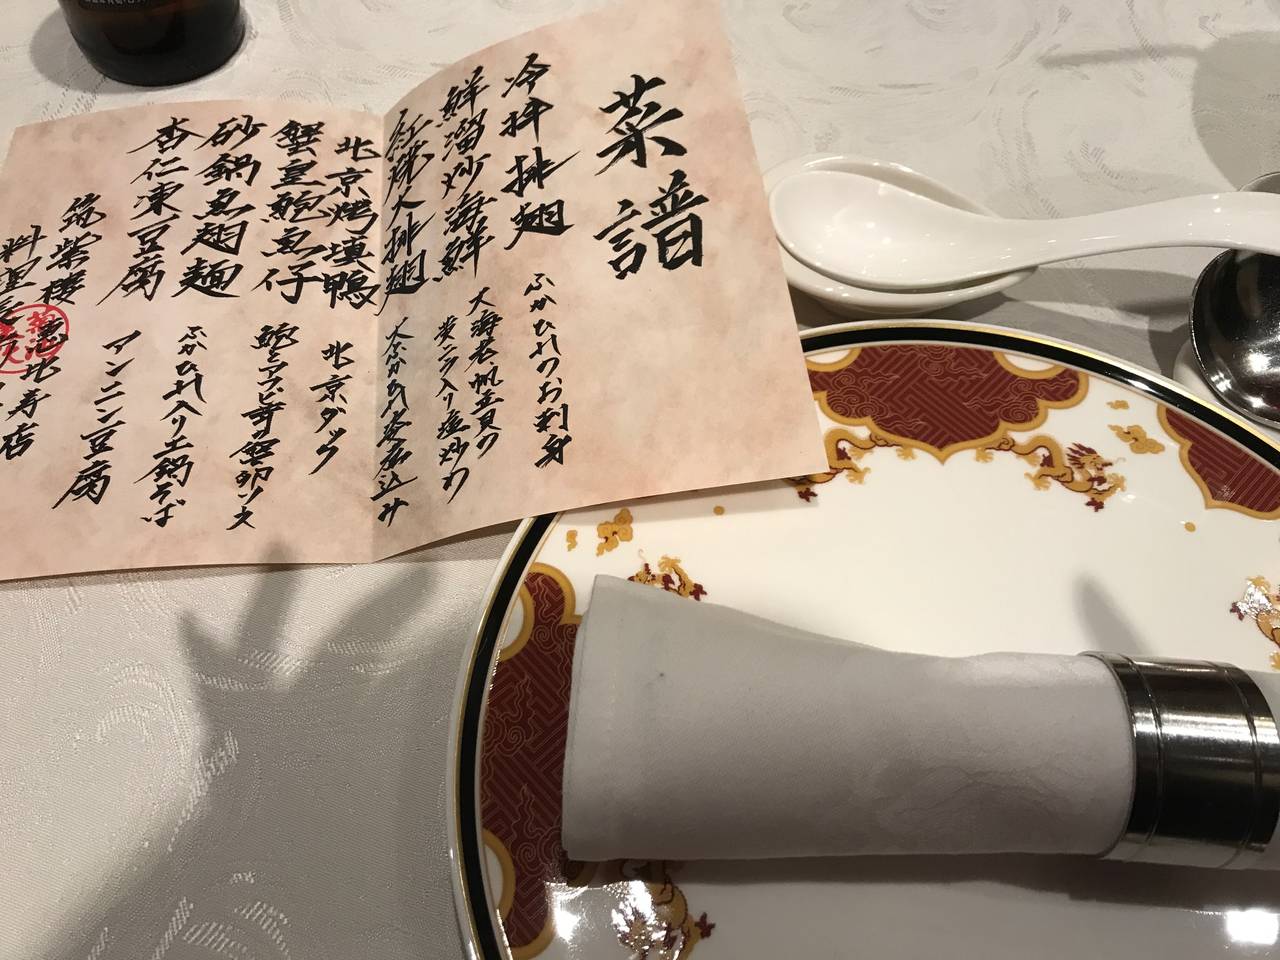 菜譜
冷拌排翅
ふかひれのお刺身
鮮溜炒海鮮
大海老帆立貝の
炒わ
紅焼大排翅
大ふかひれ姿煮込み
北京烤填鴨
北京ダック
蟹皇鮑魚仔
鮑とアワビ茸の蟹卵ソース
砂鍋魚翅麺
ふかひれ入り土鍋そば
杏仁凍豆腐
アンニン豆腐
筑紫楼 恵比寿店
料理長